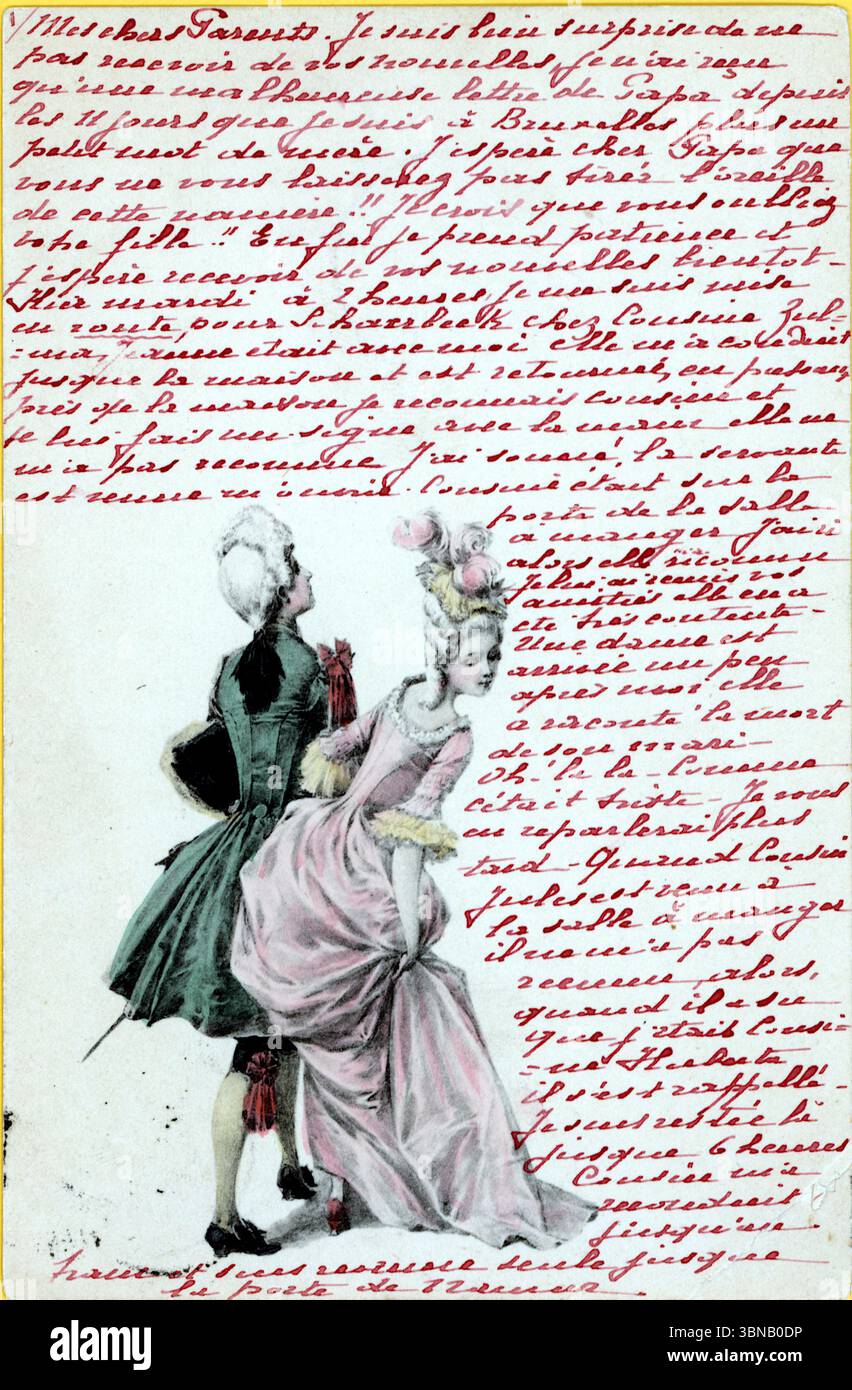 1/ Mes chers Parents. Je suis bien surprise de ne
pas recevoir de vos nouvelles, je n'ai reçu
qu'une malheureuse lettre de Papa depuis
les 11 jours que je suis à Bruxelles plus un
petit mot de mère. J'espère cher Papa que
vous ne vous laisserez pas tirer l'oreille
de cette manière!! Je crois que vous oubliez
votre fille!! Enfin je prend patience et
j'espère recevoir de vos nouvelles bientot-
Hier mardi à 2 heures, je me suis mise
en route, pour Schaerbeek chez Cousine Zul-
-ma, Jeanne était avec moi elle m'a conduit
jusque la maison et est retourné, en passant
près de la maison je reconnais cousine et
je lui fais un signe avec la main elle ne
m'a pas reconnue J'ai sonné, la servante
est venue m'ouvrir. Cousine était sur la
porte de la salle
à manger J'ai ri
alors elle reconnu
Je lui ai remis vos
amitiés elle en a
été très contente-
Une dame est
arrivée un peu
après moi elle
a raconté la mort
de son mari-
Oh! la la- Comme
c'était triste- Je vous
en reparlerai plus
tard- Quand Cousin
Jules est venu à
la salle à manger
il ne m'a pas
reconnu, alors,
quand il a su
que j'étais Cousi-
-ne Huberte
il s'est rappellé-
Je suis restée là
jusque 6 heures
Cousin m'a
reconduit
jusqu'au
tram et suis revenue seule jusque
la porte de Namur.
alamy
Image ID: 3BNB0DP
www.alamy.com